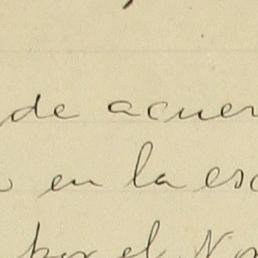 de acuer
en la esc
por el No